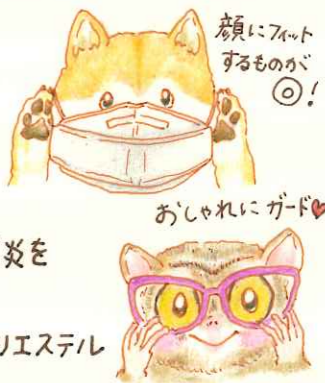 顔にフィット
するものが
◎！
おしゃれに ガード♥
炎を
リエステル